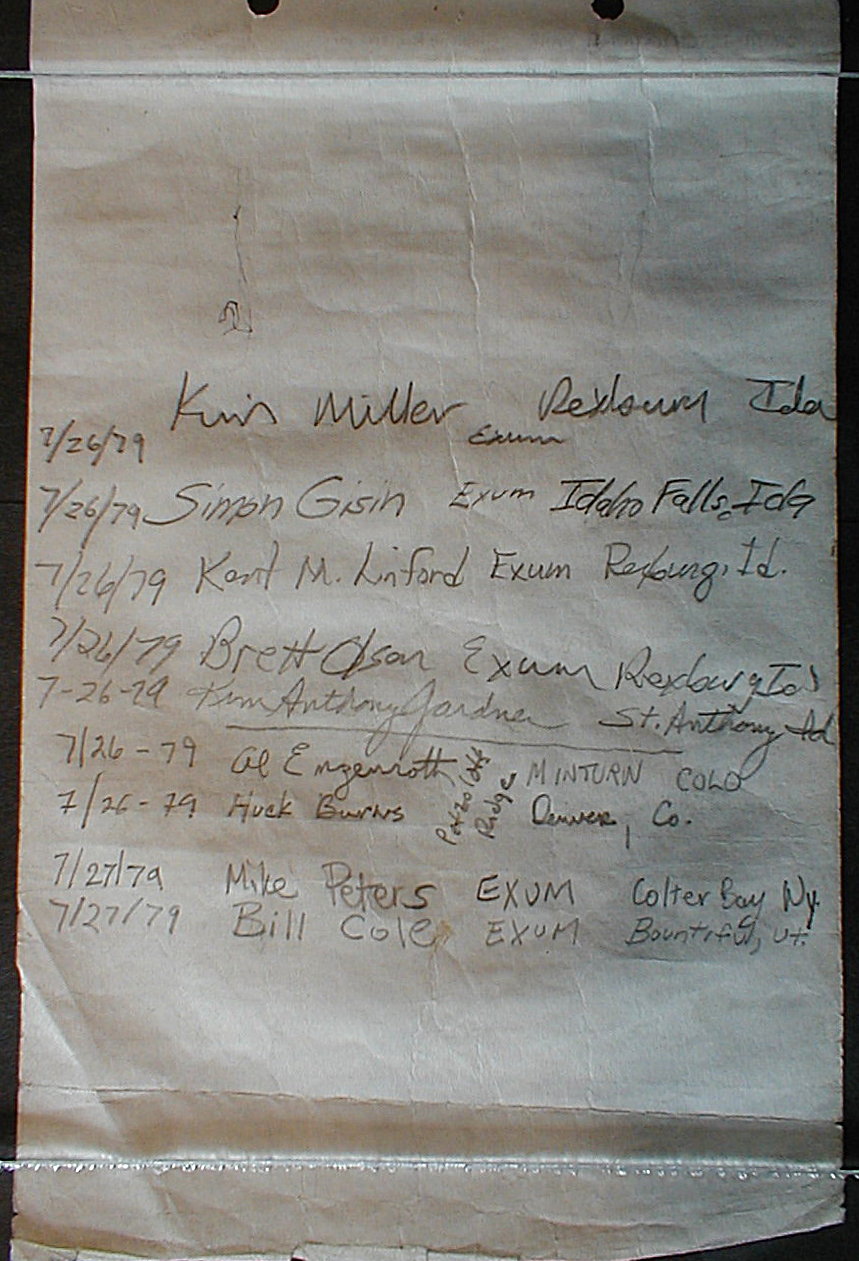 Miller Rexburg Ida
7/26/79 Exum
7/26/79 Simon Gisin Exum Idaho Falls, Ida
7/26/79 Kent M. Linford Exum Rexburg, Id.
7/26/79 Brett Olson Exum Rexburg Id
7-26-79 Kim Anthony Gardner St. Anthony Id
7/26-79 Al MINTURN COLO
7/26-79 Huck Burns Ridge Denver, Co.
7/27/79 Mike Peters EXUM Colter Bay Wy.
7/27/79 Bill Cole EXUM Bountiful, Ut.